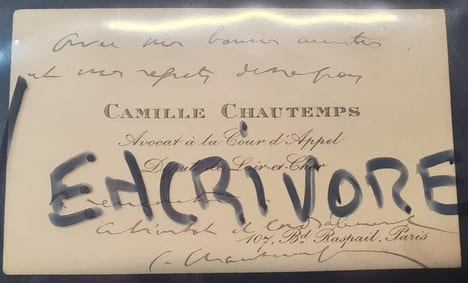 Avec mes bonnes amitiés
et mes regrets de ne pas
CAMILLE CHAUTEMPS
Avocat à la Cour d'Appel
Député de Loir-et-Cher
ENCRIVORE
A bientôt et cordialement
107, Bd. Raspail, Paris
C. Chautemps